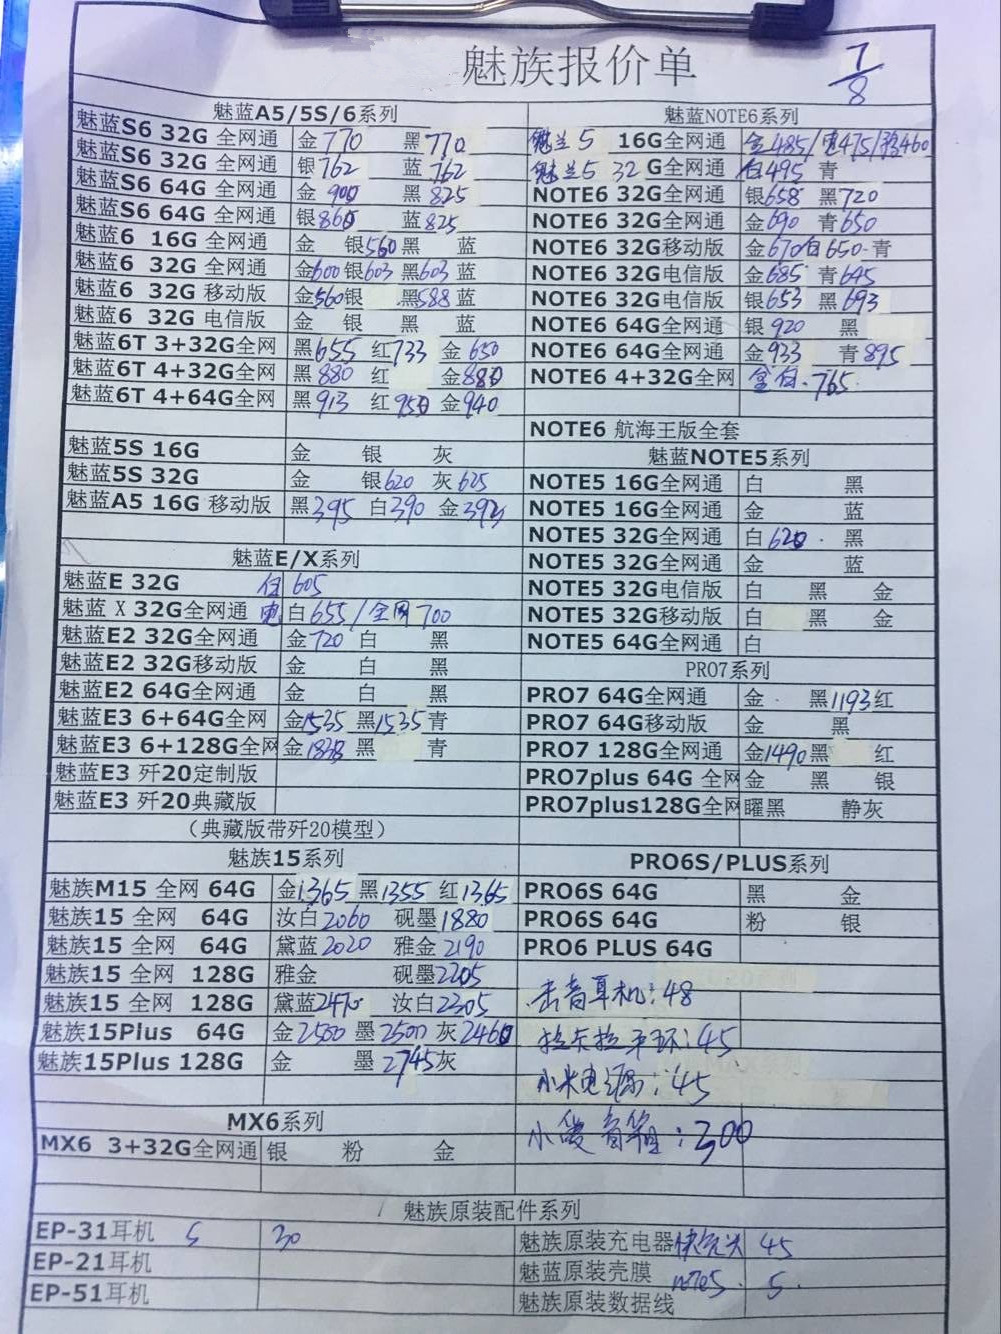 魅族报价单
7/8
魅蓝A5/5S/6系列
魅蓝S6 32G 全网通 金770 黑770
魅蓝S6 32G 全网通 银762 蓝762
魅蓝S6 64G 全网通 金900 黑825
魅蓝S6 64G 全网通 银860 蓝825
魅蓝6 16G 全网通 金 银560 黑 蓝
魅蓝6 32G 全网通 金600 银603 黑603 蓝
魅蓝6 32G 移动版 金560 银 黑588 蓝
魅蓝6 32G 电信版 金 银 黑 蓝
魅蓝6T 3+32G全网 黑655 红733 金650
魅蓝6T 4+32G全网 黑880 红 金880
魅蓝6T 4+64G全网 黑913 红950 金940
魅蓝5S 16G 金 银 灰
魅蓝5S 32G 金 银620 灰625
魅蓝A5 16G 移动版 黑395 白390 金392
魅蓝E/X系列
魅蓝E 32G 605
魅蓝 X 32G全网通 电 白655/全网700
魅蓝E2 32G全网通 金720 白 黑
魅蓝E2 32G移动版 金 白 黑
魅蓝E2 64G全网通 金 白 黑
魅蓝E3 6+64G全网 金1535 黑1535 青
魅蓝E3 6+128G全网 金 黑 青
魅蓝E3 歼20定制版
魅蓝E3 歼20典藏版
（典藏版带歼20模型）
魅族15系列
魅族M15 全网 64G 金1365 黑1355 红1365
魅族15 全网 64G 汝白2060 砚墨1880
魅族15 全网 64G 黛蓝2020 雅金2190
魅族15 全网 128G 雅金 砚墨2205
魅族15 全网 128G 黛蓝2470 汝白2305
魅族15Plus 64G 金2500 墨2500 灰2460
魅族15Plus 128G 金 墨2745 灰
MX6系列
MX6 3+32G全网通 银 粉 金
魅蓝NOTE6系列
魅兰5 16G全网通 金485/电475/移460
魅兰5 32G全网通 白495 青
NOTE6 32G全网通 银658 黑720
NOTE6 32G全网通 金690 青650
NOTE6 32G移动版 金670 白650 青
NOTE6 32G电信版 金685 青645
NOTE6 32G电信版 银653 黑693
NOTE6 64G全网通 银920 黑
NOTE6 64G全网通 金933 青895
NOTE6 4+32G全网 金白.765
NOTE6 航海王版全套
魅蓝NOTE5系列
NOTE5 16G全网通 白 黑
NOTE5 16G全网通 金 蓝
NOTE5 32G全网通 白620 黑
NOTE5 32G全网通 金 蓝
NOTE5 32G电信版 白 黑 金
NOTE5 32G移动版 白 黑 金
NOTE5 64G全网通 白
PRO7系列
PRO7 64G全网通 金 黑1193 红
PRO7 64G移动版 金 黑
PRO7 128G全网通 金1490 黑 红
PRO7plus 64G 全网 金 黑 银
PRO7plus128G全网 曜黑 静灰
PRO6S/PLUS系列
PRO6S 64G 黑 金
PRO6S 64G 粉 银
PRO6 PLUS 64G
耳机:48
拉卡拉手环:45
小米电源:45
小 音箱:300
魅族原装配件系列
EP-31耳机 30
EP-21耳机
EP-51耳机
魅族原装充电器 快充头 45
魅蓝原装壳膜 note5. 5.
魅族原装数据线